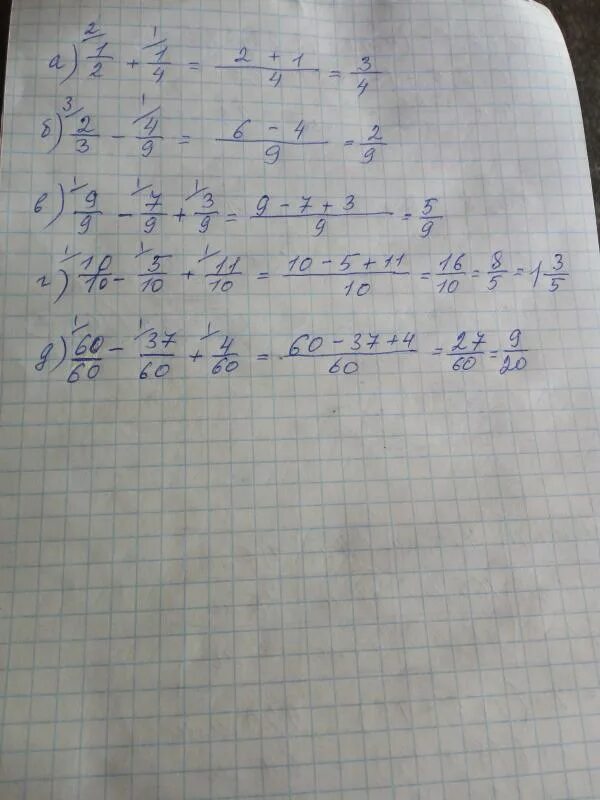 а) ²⁄1/2 + ¹⁄1/4 = (2 + 1)/4 = 3/4
б) ³⁄2/3 - ¹⁄4/9 = (6 - 4)/9 = 2/9
в) ¹⁄9/9 - ¹⁄7/9 + ¹⁄3/9 = (9 - 7 + 3)/9 = 5/9
г) ¹⁄10/10 - ¹⁄5/10 + ¹⁄11/10 = (10 - 5 + 11)/10 = 16/10 = 8/5 = 1 3/5
д) ¹⁄60/60 - ¹⁄37/60 + ¹⁄4/60 = (60 - 37 + 4)/60 = 27/60 = 9/20